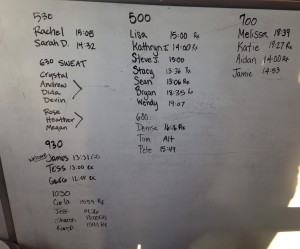 530
Rachel 15:08
Sarah D. 14:32
630 SWEAT
Crystal
Andrew
Dida
Devin
Rose
Heather
Megan
930
James 13:31
Tess 13:00 Rx
Greg
1030
Carla
Jeff
Sharon
500
Lisa 15:00 Rx
Kathryn J 14:00 Rx
Steve J. 15:00
Stacy 13:36
Sean 13:06 Rx
Bryan 18:35 Rx
Wendy 19:07
600
Denise 16:16 Rx
Tim Alt
Pete 15:49
700
Melissa 18:39
Katie 19:27 Rx
Aidan 14:00 Rx
Jamie 14:53